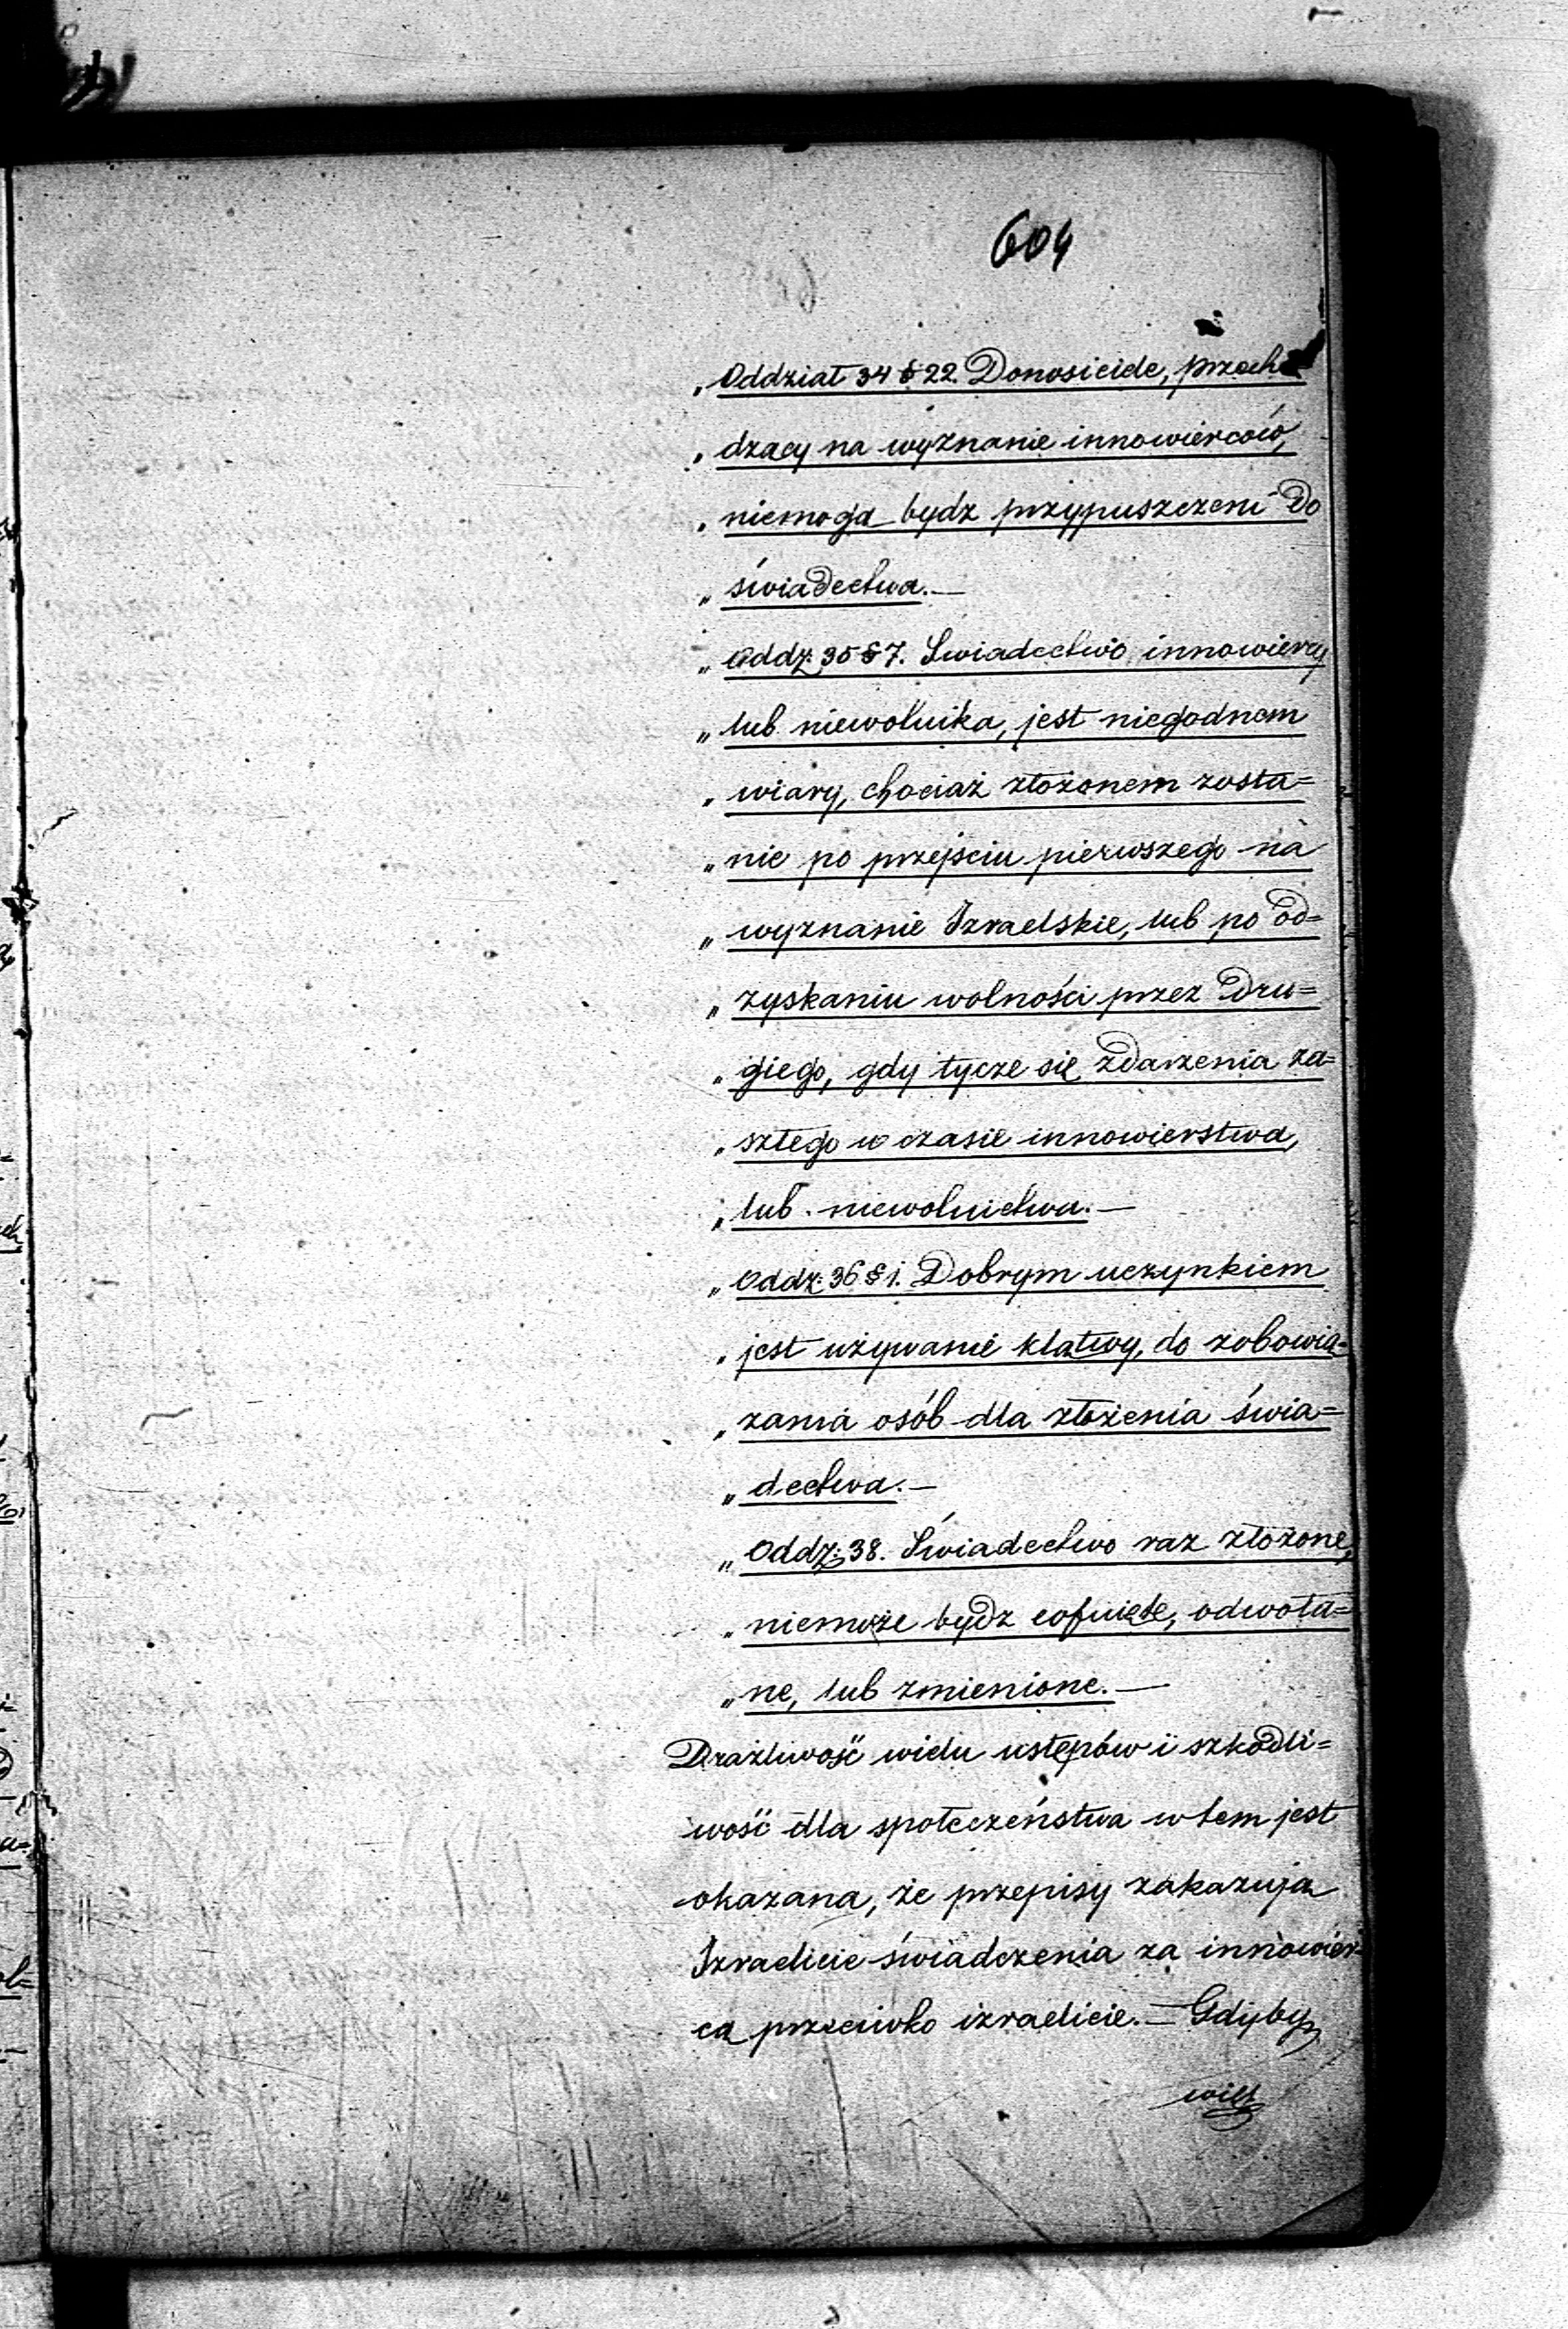 604
„Oddział 34 § 22. Donosiciele, przecho=
„dzący na wyznanie innowierców,
„niemogą bydz przypuszczeni do
„świadectwa.—
„Oddz: 35 § 7. Świadectwo innowiercy
„lub niewolnika, jest niegodnem
„wiary, chociaż złożonem zosta=
„nie po przejściu pierwszego na
„wyznanie Izraelskie, lub po od=
„zyskaniu wolności przez dru=
„giego, gdy tycze się zdarzenia za=
„szłego w czasie innowierstwa,
„lub niewolnictwa.—
„Oddz: 36 § 1. Dobrym uczynkiem
„jest używanie klątwy, do zobowią=
„zania osób dla złożenia świa=
„dectwa.—
„Oddz: 38. Świadectwo raz złożone,
„niemoże bydz cofnięte, odwoła=
„ne, lub zmienione.—
Drażliwość wielu ustępów i szkodli=
wość dla społeczeństwa w tem jest
okazana, że przepisy zakazują
Izraelicie świadczenia za innowier=
cą przeciwko izraelicie.— Gdyby